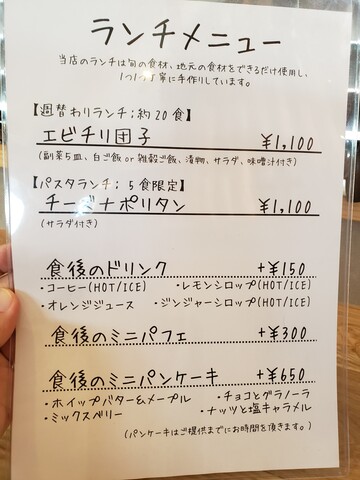 ランチメニュー
当店のランチは旬の食材、地元の食材をできるだけ使用し、
1つ1つ丁寧に手作りしています。
【週替わりランチ;約20食】
エビチリ団子 ¥1,100
(副菜5皿、白ご飯 or 雑穀ご飯、漬物、サラダ、味噌汁付き)
【パスタランチ; 5食限定】
チーズナポリタン ¥1,100
(サラダ付き)
食後のドリンク +¥150
・コーヒー(HOT/ICE) ・レモンシロップ(HOT/ICE)
・オレンジジュース ・ジンジャーシロップ(HOT/ICE)
食後のミニパフェ +¥300
食後のミニパンケーキ +¥650
・ホイップバター&メープル ・チョコとグラノーラ
・ミックスベリー ・ナッツと塩キャラメル
(パンケーキはご提供までにお時間を頂きます。)